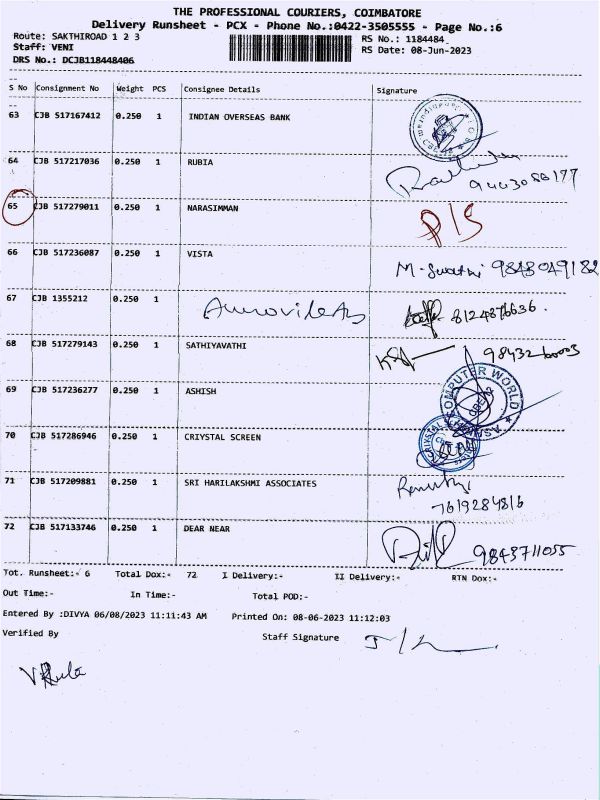 THE PROFESSIONAL COURIERS, COIMBATORE
Delivery Runsheet - PCX - Phone No.:0422-3505555 - Page No.:6
Route: SAKTHIROAD 1 2 3
RS No.: 1184484
Staff: VENI
RS Date: 08-Jun-2023
DRS No.: DCJB118448406
S No Consignment No Weight PCS Consignee Details Signature
63 CJB 517167412 0.250 1 INDIAN OVERSEAS BANK
64 CJB 517217036 0.250 1 RUBIA
65 CJB 517279011 0.250 1 NARASIMMAN P/S
66 CJB 517236087 0.250 1 VISTA M-Swathi 9843049182
67 CJB 1355212 0.250 1 8124876636.
68 CJB 517279143 0.250 1 SATHIYAVATHI
69 CJB 517236277 0.250 1 ASHISH COMPUTER WORLD
70 CJB 517286946 0.250 1 CRIYSTAL SCREEN
71 CJB 517209881 0.250 1 SRI HARILAKSHMI ASSOCIATES
7619284816
72 CJB 517133746 0.250 1 DEAR NEAR 9843711055
Tot. Runsheet:- 6 Total Dox:- 72 I Delivery:- II Delivery:- RTN Dox:-
Out Time:- In Time:- Total POD:-
Entered By :DIVYA 06/08/2023 11:11:43 AM Printed On: 08-06-2023 11:12:03
Verified By Staff Signature